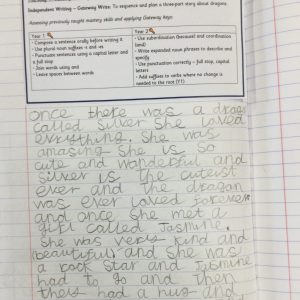 Independent Writing – Gateway Write: To sequence and plan a three-part story about dragons.
Assessing previously taught mastery skills and applying Gateway Keys:
Year 1
• Compose a sentence orally before writing it
• Use plural noun suffixes -s and -es
• Punctuate sentences using a capital letter and a full stop
• Join words using and
• Leave spaces between words
Year 2
• Use subordination (because) and coordination (and)
• Write expanded noun phrases to describe and specify
• Use punctuation correctly – full stop, capital letters
• Add suffixes to verbs where no change is needed to the root (Y1)
once there was a dragon
called silver she loved
everything. She was
amazing She is so
cute and wonderful and
silver is the cuteist
ever and the dragon
was ever loved
and once she met a
girl called Jasmine.
She was very kind and
beautiful and she was
a rock star and Jasmine
had to go and then
they had a hug and